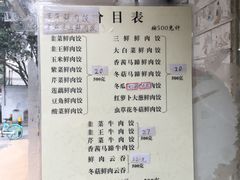 价目表
每500克计
韭菜鲜肉饺
韭王鲜肉饺
玉米鲜肉饺
紫菜鲜肉饺
芹菜鲜肉饺
莲藕鲜肉饺
豆角鲜肉饺
酸菜鲜肉饺
20
500克
三鲜鲜肉饺
大白菜鲜肉饺
香茜马蹄鲜肉饺
冬菇马蹄鲜肉饺
冬瓜
红萝卜大葱鲜肉饺
虫草花冬菇鲜肉饺
20
500克
韭菜牛肉饺
韭王牛肉饺
芹菜牛肉饺
香茜马蹄牛肉饺
27
500克
鲜肉云吞
冬菇鲜肉云吞
500克